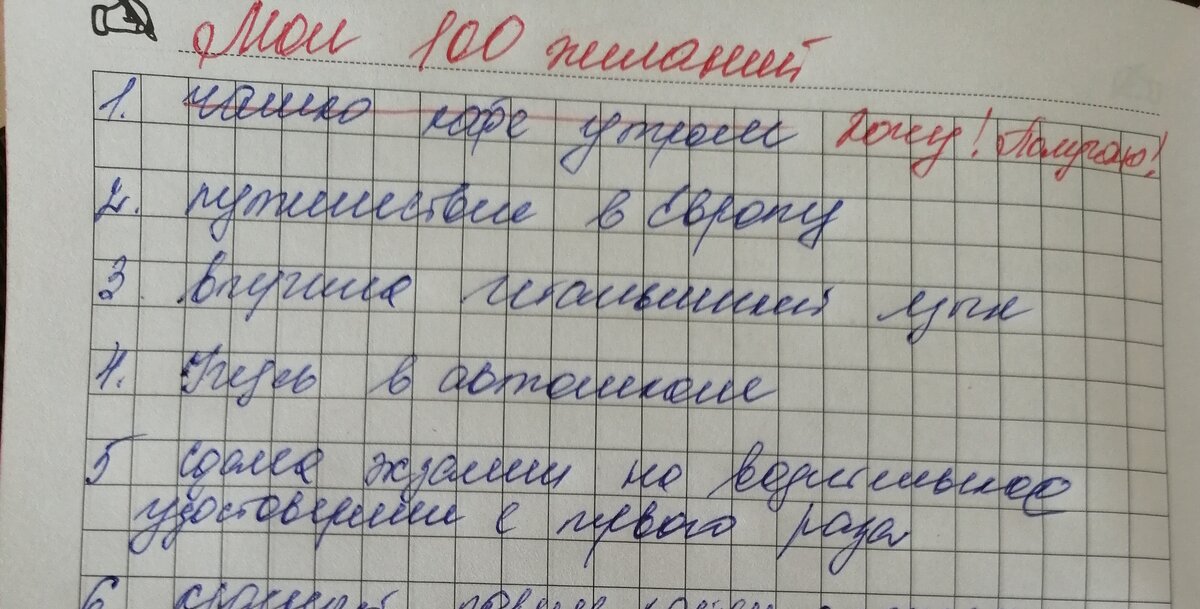 Мои 100 желаний
1. чашка кофе утром Хочу! Получаю!
2. путешествие в Европу
3. выучила итальянский язык
4. Учусь в автошколе
5 сдала экзамен на водительское
удостоверение с первого раза
6